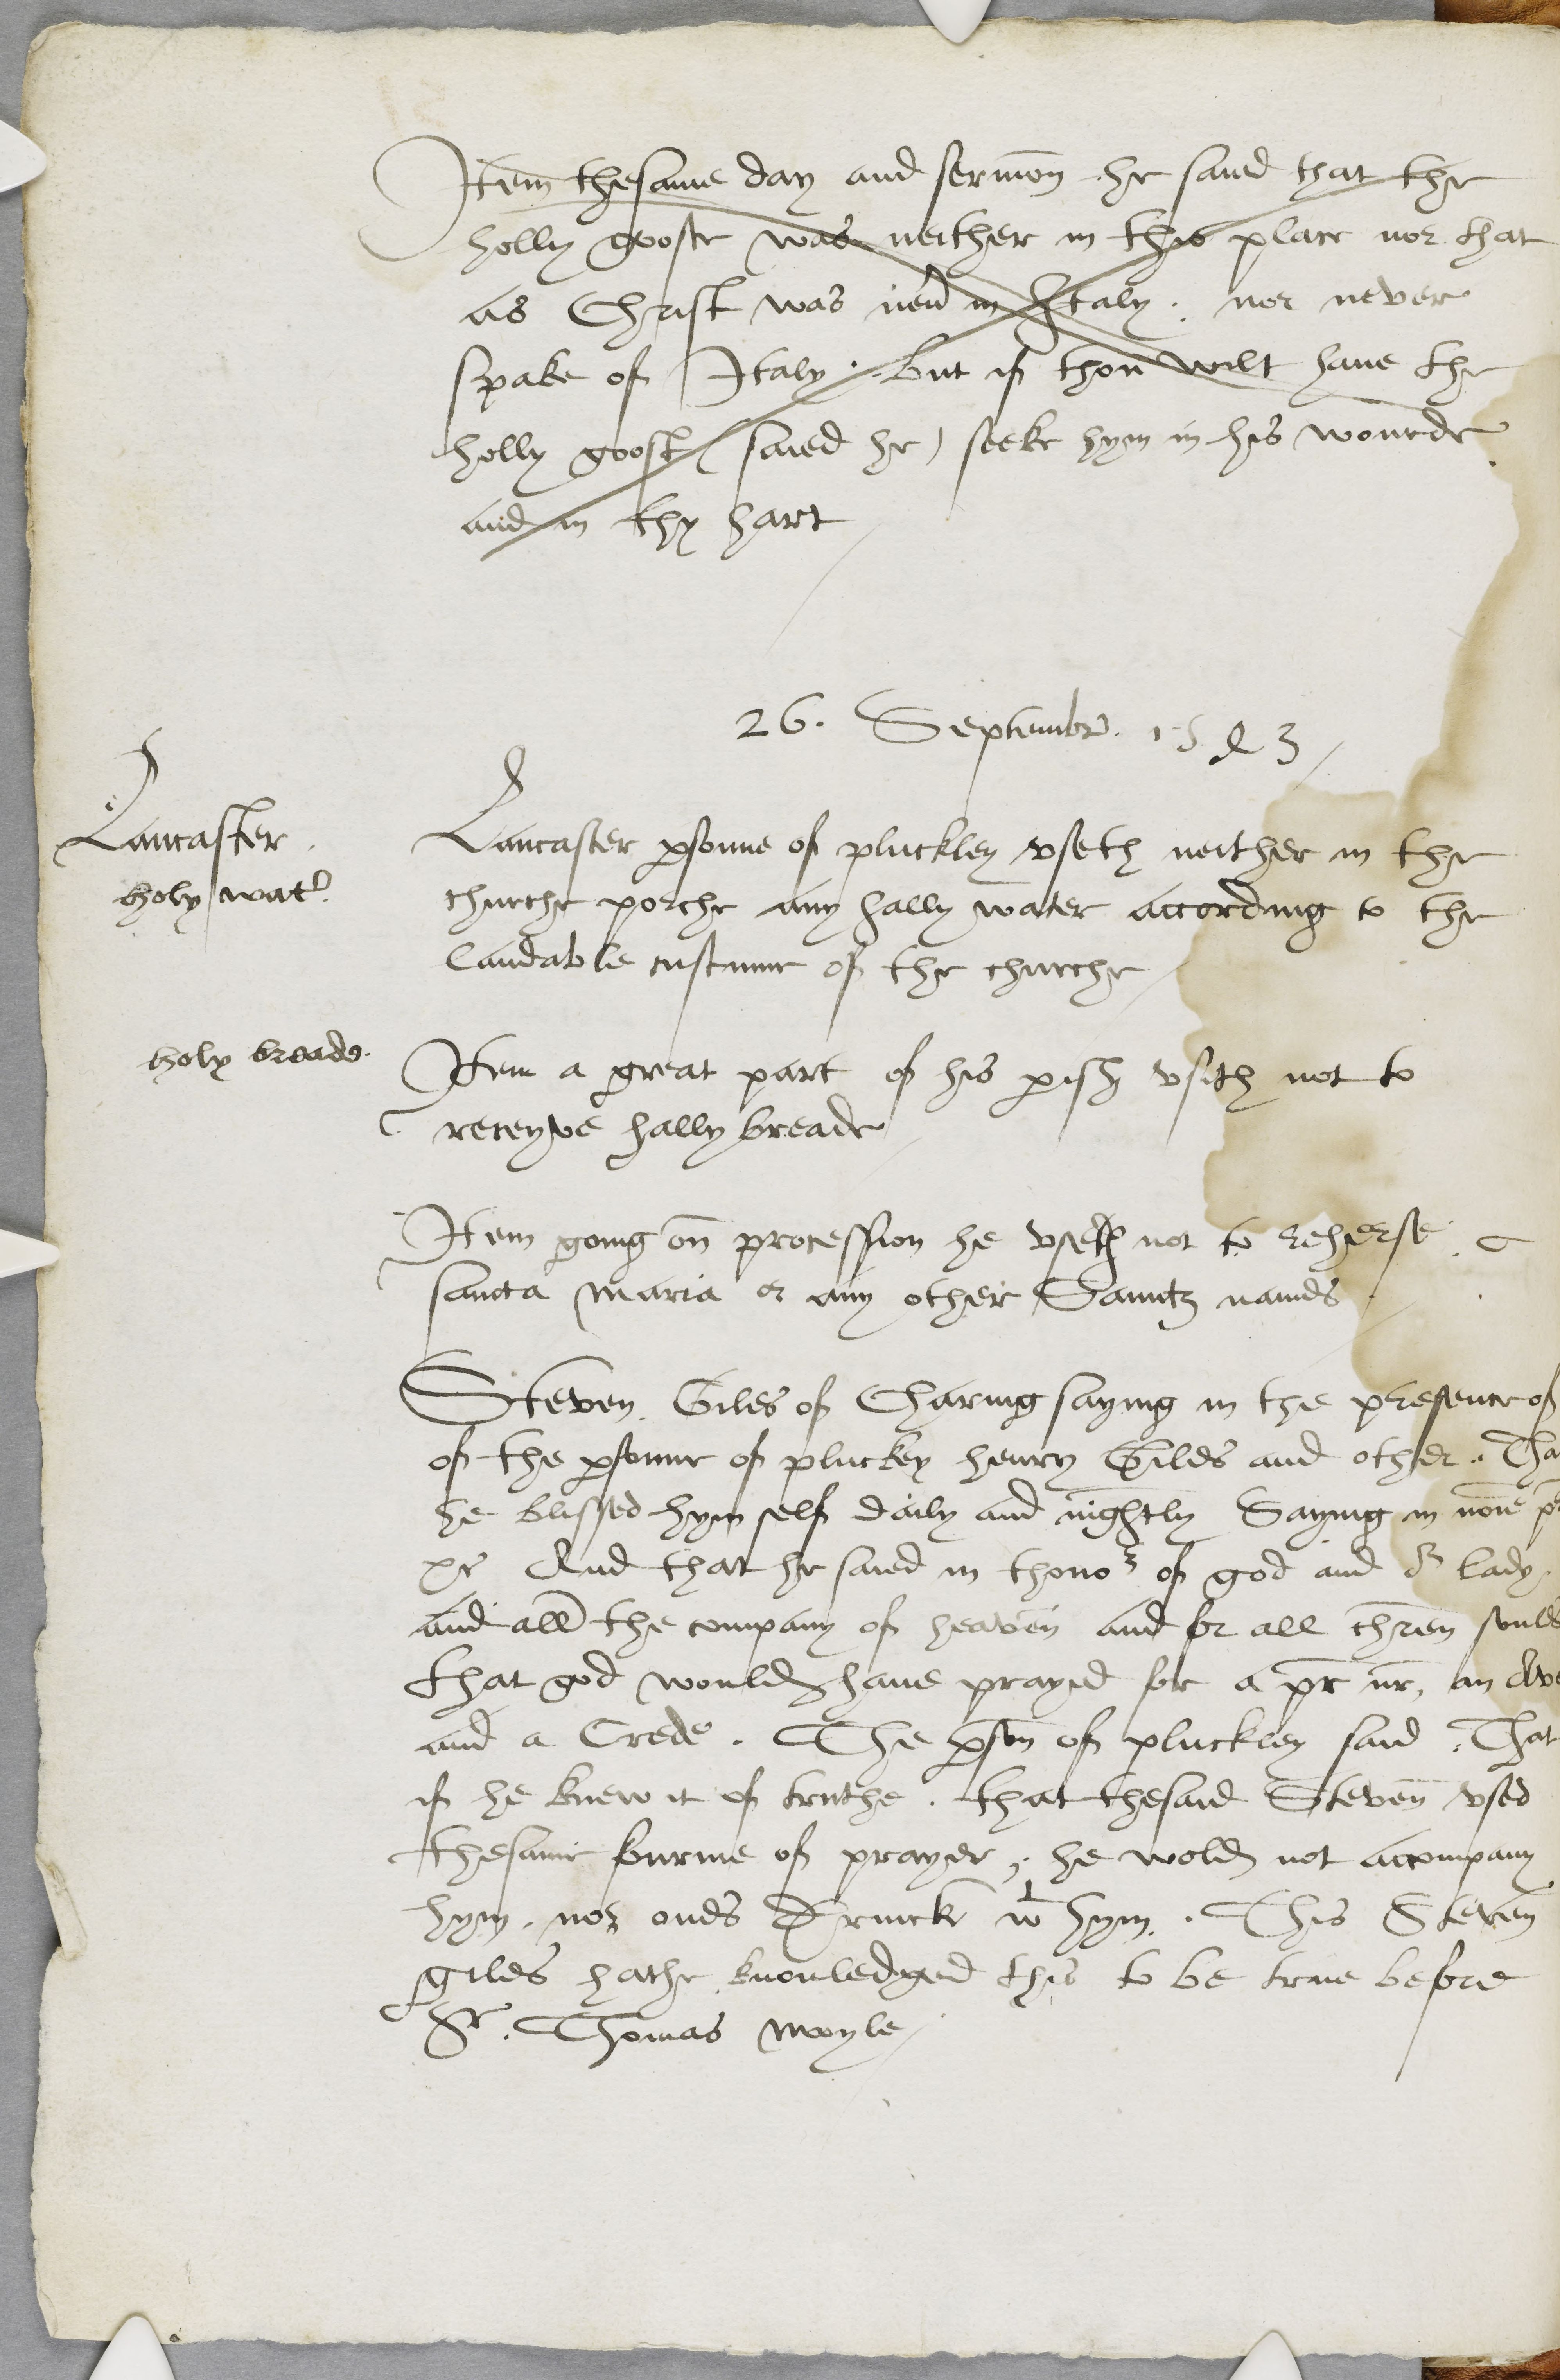 Item thesame day and sermon he saied that the
holly gooste was neither in this place nor that
as Christ was neu͛ in Italy. nor never
spake of Italy. But if thou wilt haue the
holly goost (saied he) seeke hym in his wourde
and in thy hart
26. Septembr͛. 1543
Lancaster.
holy wat͛.
Lancaster ꝑsonne of pluckley vseth neither in the
churche porche any hally water according to the
laudable custume of the churche
holy breade.
Item a great part of his ꝑish vsith not to
receyve hally breade
Item going on procession he vseth not to reherse
sancta Maria or any other Saintz names
Steven Giles of Charing saying in the presence of
of the ꝑsonne of pluckey henry Giles and other. Tha
he blissed hym self daily and nightly Saying in no͞ie p
And that he saied in thonoʳ of god and oʳ lady.
and all the company of heaven and for all chr͞en soules
that god would haue prayed for a pr͞ nr͞, an Ave
and a Crede. The ꝑson of pluckley said. That
if he knew it of truthe. that thesaid Steven vsed
thesame fourme of prayer, he wold not accompany
hym. nor ones Drincke wᵗ hym. This Steven
giles hathe knowledged this to be true before
Sʳ. Thomas Moyle